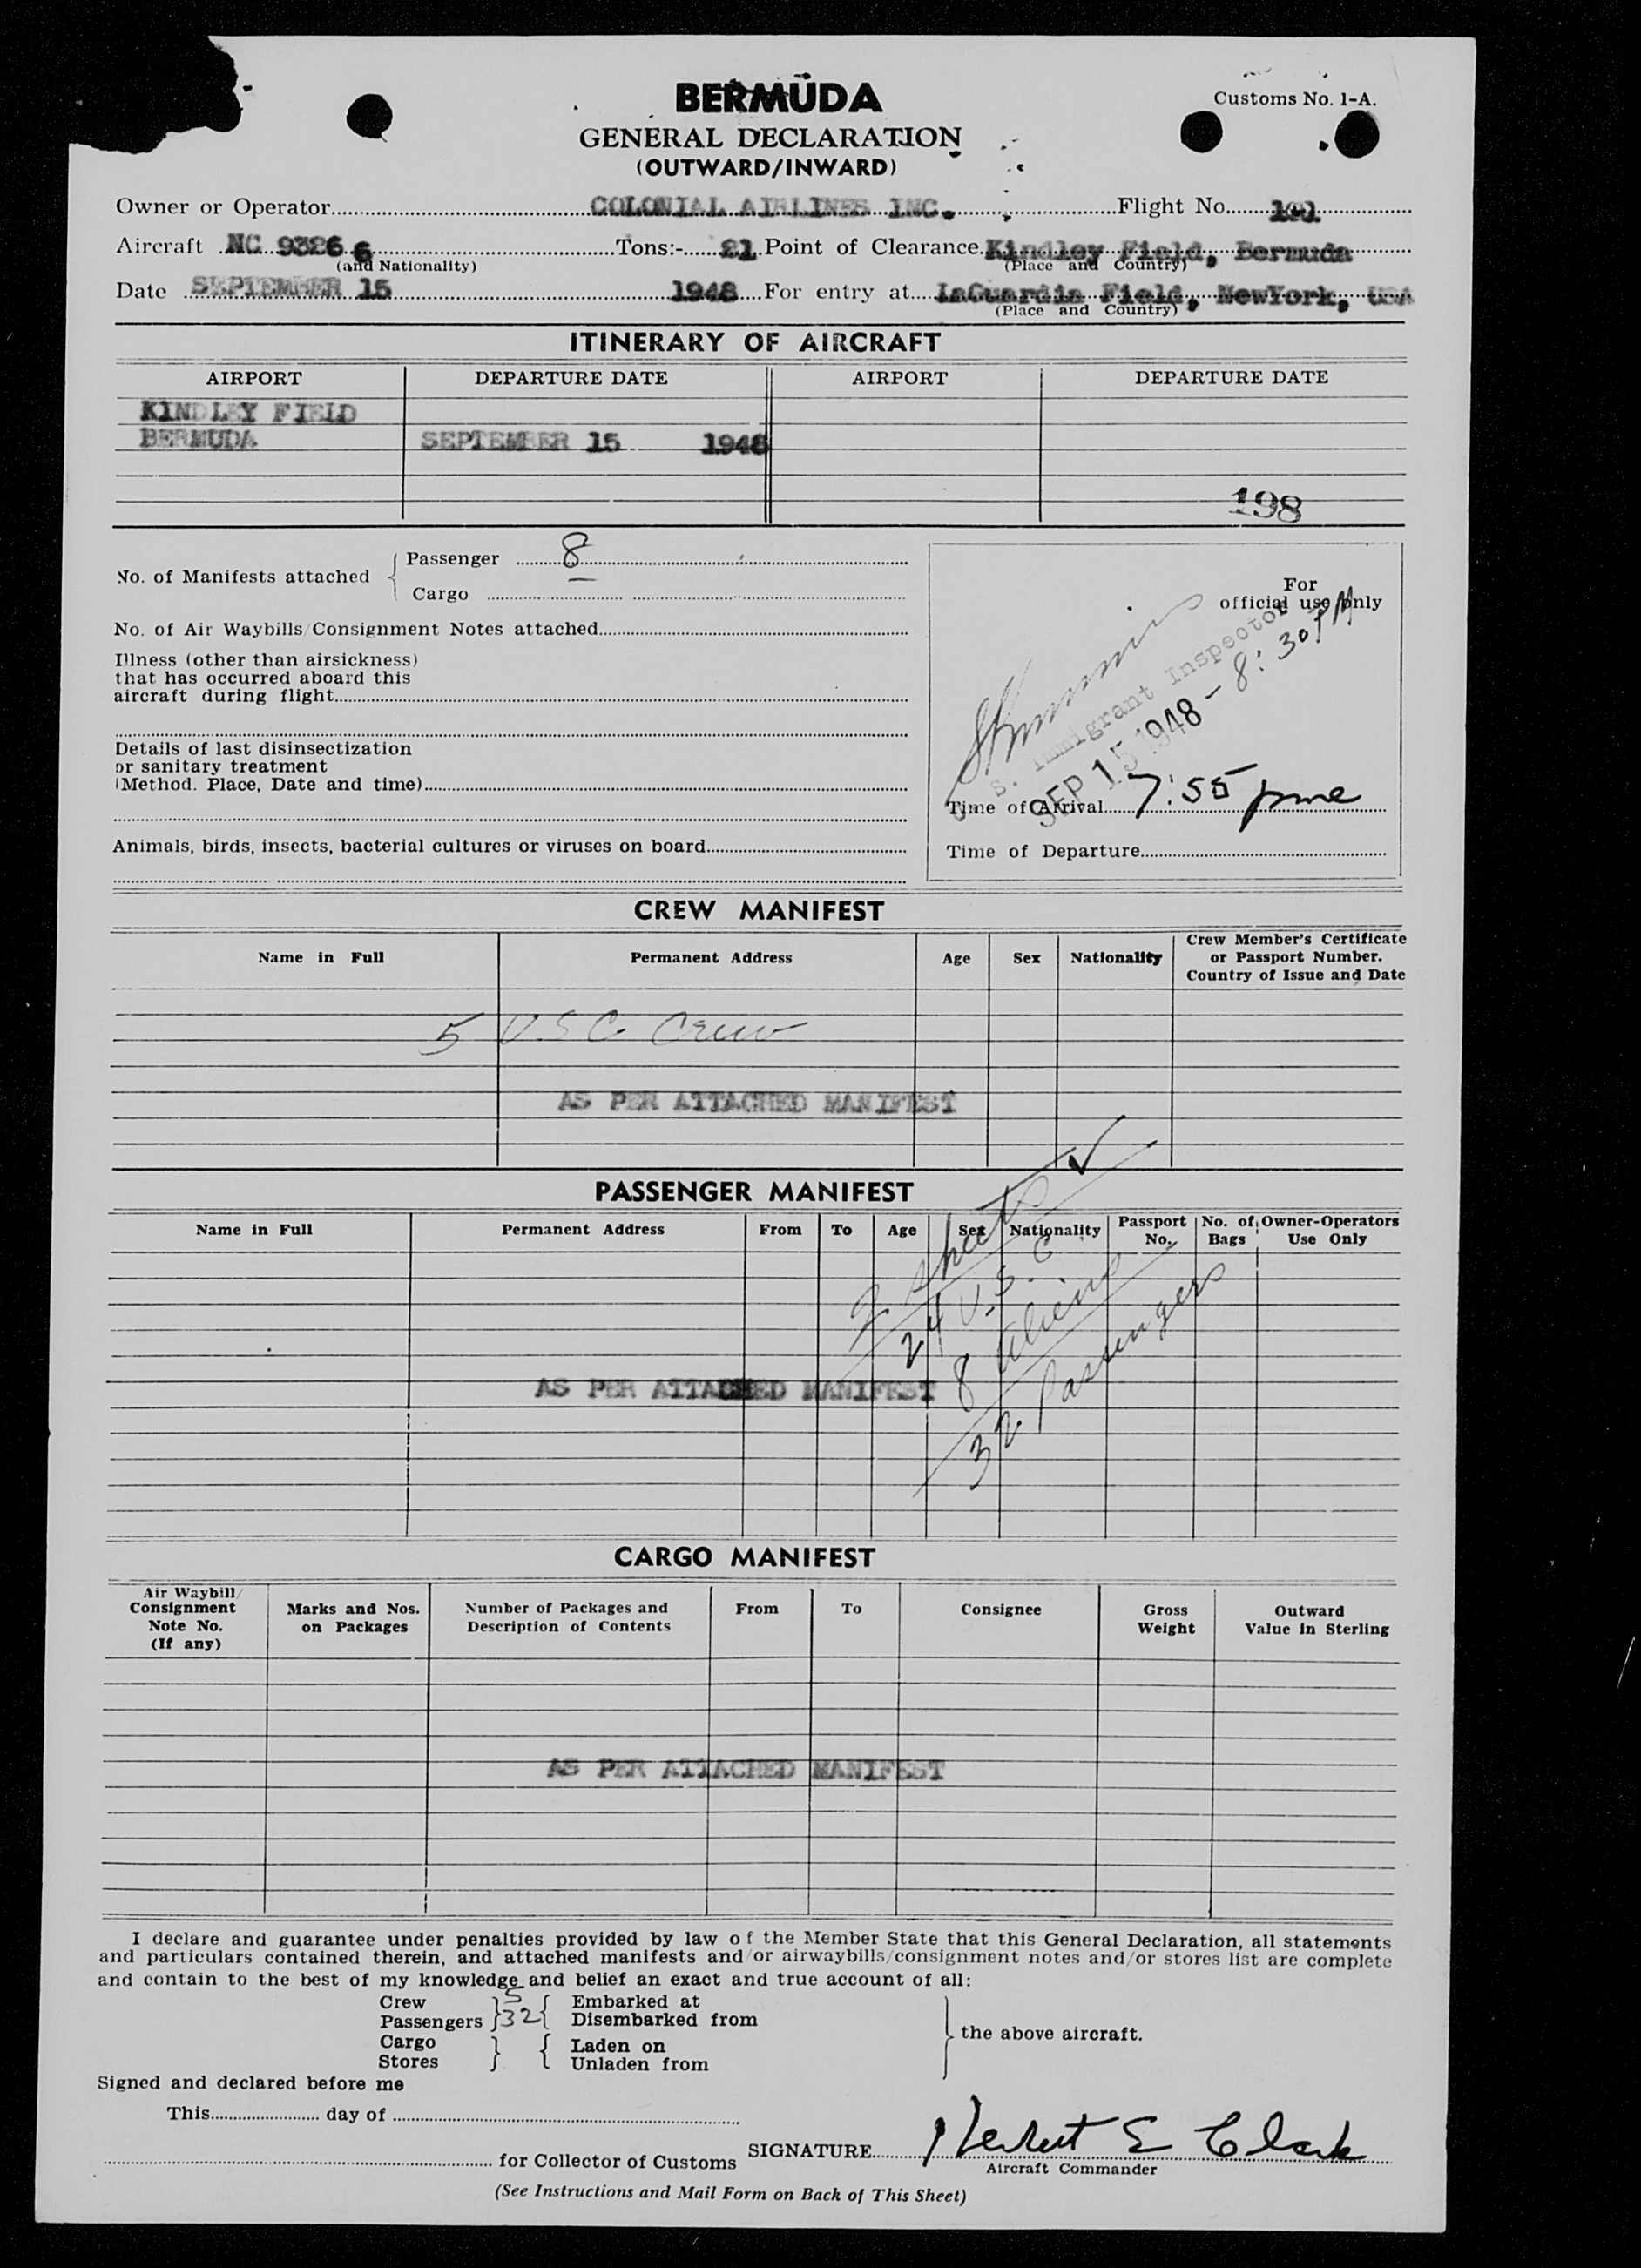 BERMUDA
Customs No. 1-A.
GENERAL DECLARATION
(OUTWARD/INWARD)
Owner or Operator COLONIAL AIRLINES INC. Flight No.
Aircraft NC 93266 Tons:- 21 Point of Clearance Kindley Field, Bermuda
(and Nationality) (Place and Country)
Date SEPTEMBER 15 1948 For entry at LaGuardia Field, NewYork, USA
(Place and Country)
ITINERARY OF AIRCRAFT
AIRPORT DEPARTURE DATE AIRPORT DEPARTURE DATE
KINDLEY FIELD
BERMUDA SEPTEMBER 15 1948
198
No. of Manifests attached
Passenger 8
Cargo
No. of Air Waybills/Consignment Notes attached
Illness (other than airsickness)
that has occurred aboard this
aircraft during flight
Details of last disinsectization
or sanitary treatment
(Method. Place, Date and time)
Animals, birds, insects, bacterial cultures or viruses on board
For
official use only
U. S. Immigrant Inspector
SEP 15 1948 - 8:30 PM
Time of Arrival 7:55 pm
Time of Departure
CREW MANIFEST
Name in Full Permanent Address Age Sex Nationality Crew Member's Certificate
or Passport Number.
Country of Issue and Date
5 U.S.C. Crew
AS PER ATTACHED MANIFEST
PASSENGER MANIFEST
Name in Full Permanent Address From To Age Sex Nationality Passport No. No. of Bags Owner-Operators Use Only
sheets
24 U.S.C.
8 Aliens
32 Passengers
AS PER ATTACHED MANIFEST
CARGO MANIFEST
Air Waybill/
Consignment
Note No.
(If any)
Marks and Nos.
on Packages
Number of Packages and
Description of Contents
From To Consignee
Gross
Weight
Outward
Value in Sterling
AS PER ATTACHED MANIFEST
I declare and guarantee under penalties provided by law of the Member State that this General Declaration, all statements
and particulars contained therein, and attached manifests and/or airwaybills/consignment notes and/or stores list are complete
and contain to the best of my knowledge and belief an exact and true account of all:
Crew 5 Embarked at
Passengers 32 Disembarked from
the above aircraft.
Cargo Laden on
Stores Unladen from
Signed and declared before me
This day of
for Collector of Customs
SIGNATURE Herbert E Clark
Aircraft Commander
(See Instructions and Mail Form on Back of This Sheet)